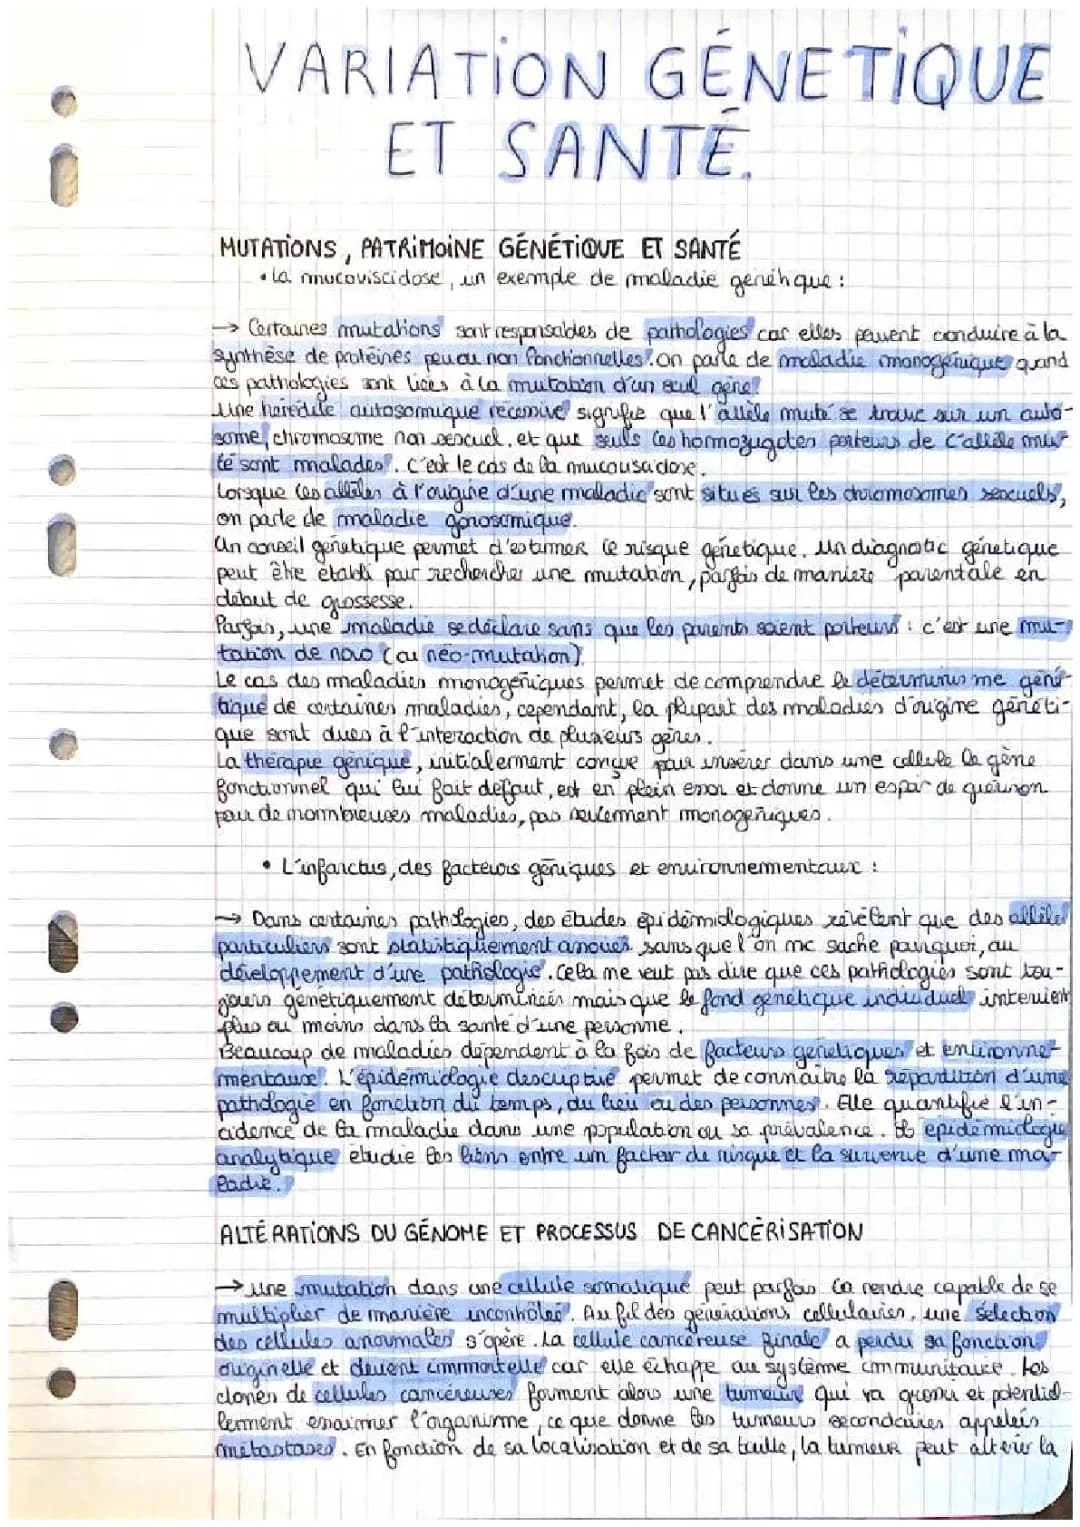 VARIATION GÉNETIQUE
ET SANTÉ.
MUTATIONS, PATRIMOINE GÉNÉTIQUE ET SANTÉ
• La mucoviscidose, un exemple de maladie génétique :
→ Certaines mutations sont responsables de pathologies car elles peuvent conduire à la
synthèse de protéines peu ou non fonctionnelles. On parle de maladie monogénique quand
ces pathologies sont liées à la mutation d'un seul gène.
Une hérédité autosomique récessive signifie que l'allèle muté se trouve sur un auto-
some, chromosome non sexuel, et que seuls les homozygotes porteurs de l'allèle mu-
té sont malades. C'est le cas de la mucoviscidose.
Lorsque les allèles à l'origine d'une maladie sont situés sur les chromosomes sexuels,
on parle de maladie gonosomique.
Un conseil génétique permet d'estimer le risque génétique. Un diagnostic génétique
peut être établi pour rechercher une mutation, parfois de manière parentale en
début de grossesse.
Parfois, une maladie se déclare sans que les parents soient porteurs : c'est une mu-
tation de novo (ou néo-mutation).
Le cas des maladies monogéniques permet de comprendre le déterminisme géné-
tique de certaines maladies, cependant, la plupart des maladies d'origine généti-
que sont dues à l'interaction de plusieurs gènes.
La thérapie génique, initialement conçue pour insérer dans une cellule le gène
fonctionnel qui lui fait deffaut, est en plein essor et donne un espoir de guérison
pour de nombreuses maladies, pas seulement monogéniques.
• L'infarctus, des facteurs géniques et environnementaux :
→ Dans certaines pathologies, des études épidémiologiques révèlent que des allèles
particuliers sont statistiquement associés sans que l'on ne sache pourquoi, au
développement d'une pathologie. Cela ne veut pas dire que ces pathologies sont tou-
jours génétiquement déterminées mais que le fond génétique individuel intervient
plus ou moins dans la santé d'une personne.
Beaucoup de maladies dépendent à la fois de facteurs génétiques et environne-
mentaux. L'épidémiologie descriptive permet de connaître la répartition d'une
pathologie en fonction du temps, du lieu ou des personnes. Elle quantifie l'in-
cidence de la maladie dans une population ou sa prévalence. L'épidémiologie
analytique étudie les liens entre un facteur de risque et la survenue d'une ma-
ladie.
ALTÉRATIONS DU GÉNOME ET PROCESSUS DE CANCÉRISATION
→ Une mutation dans une cellule somatique peut parfois la rendre capable de se
multiplier de manière incontrôlée. Au fil des générations cellulaires, une sélection
des cellules anormales s'opère. La cellule cancéreuse finale a perdu sa fonction
originelle et devient immortelle car elle échape au système immunitaire. Les
clones de cellules cancéreuses forment alors une tumeur qui va grossir et potentiel-
lement essaimer l'organisme, ce que donne les tumeurs secondaires appelées
métastases. En fonction de sa localisation et de sa taille, la tumeur peut altérer la